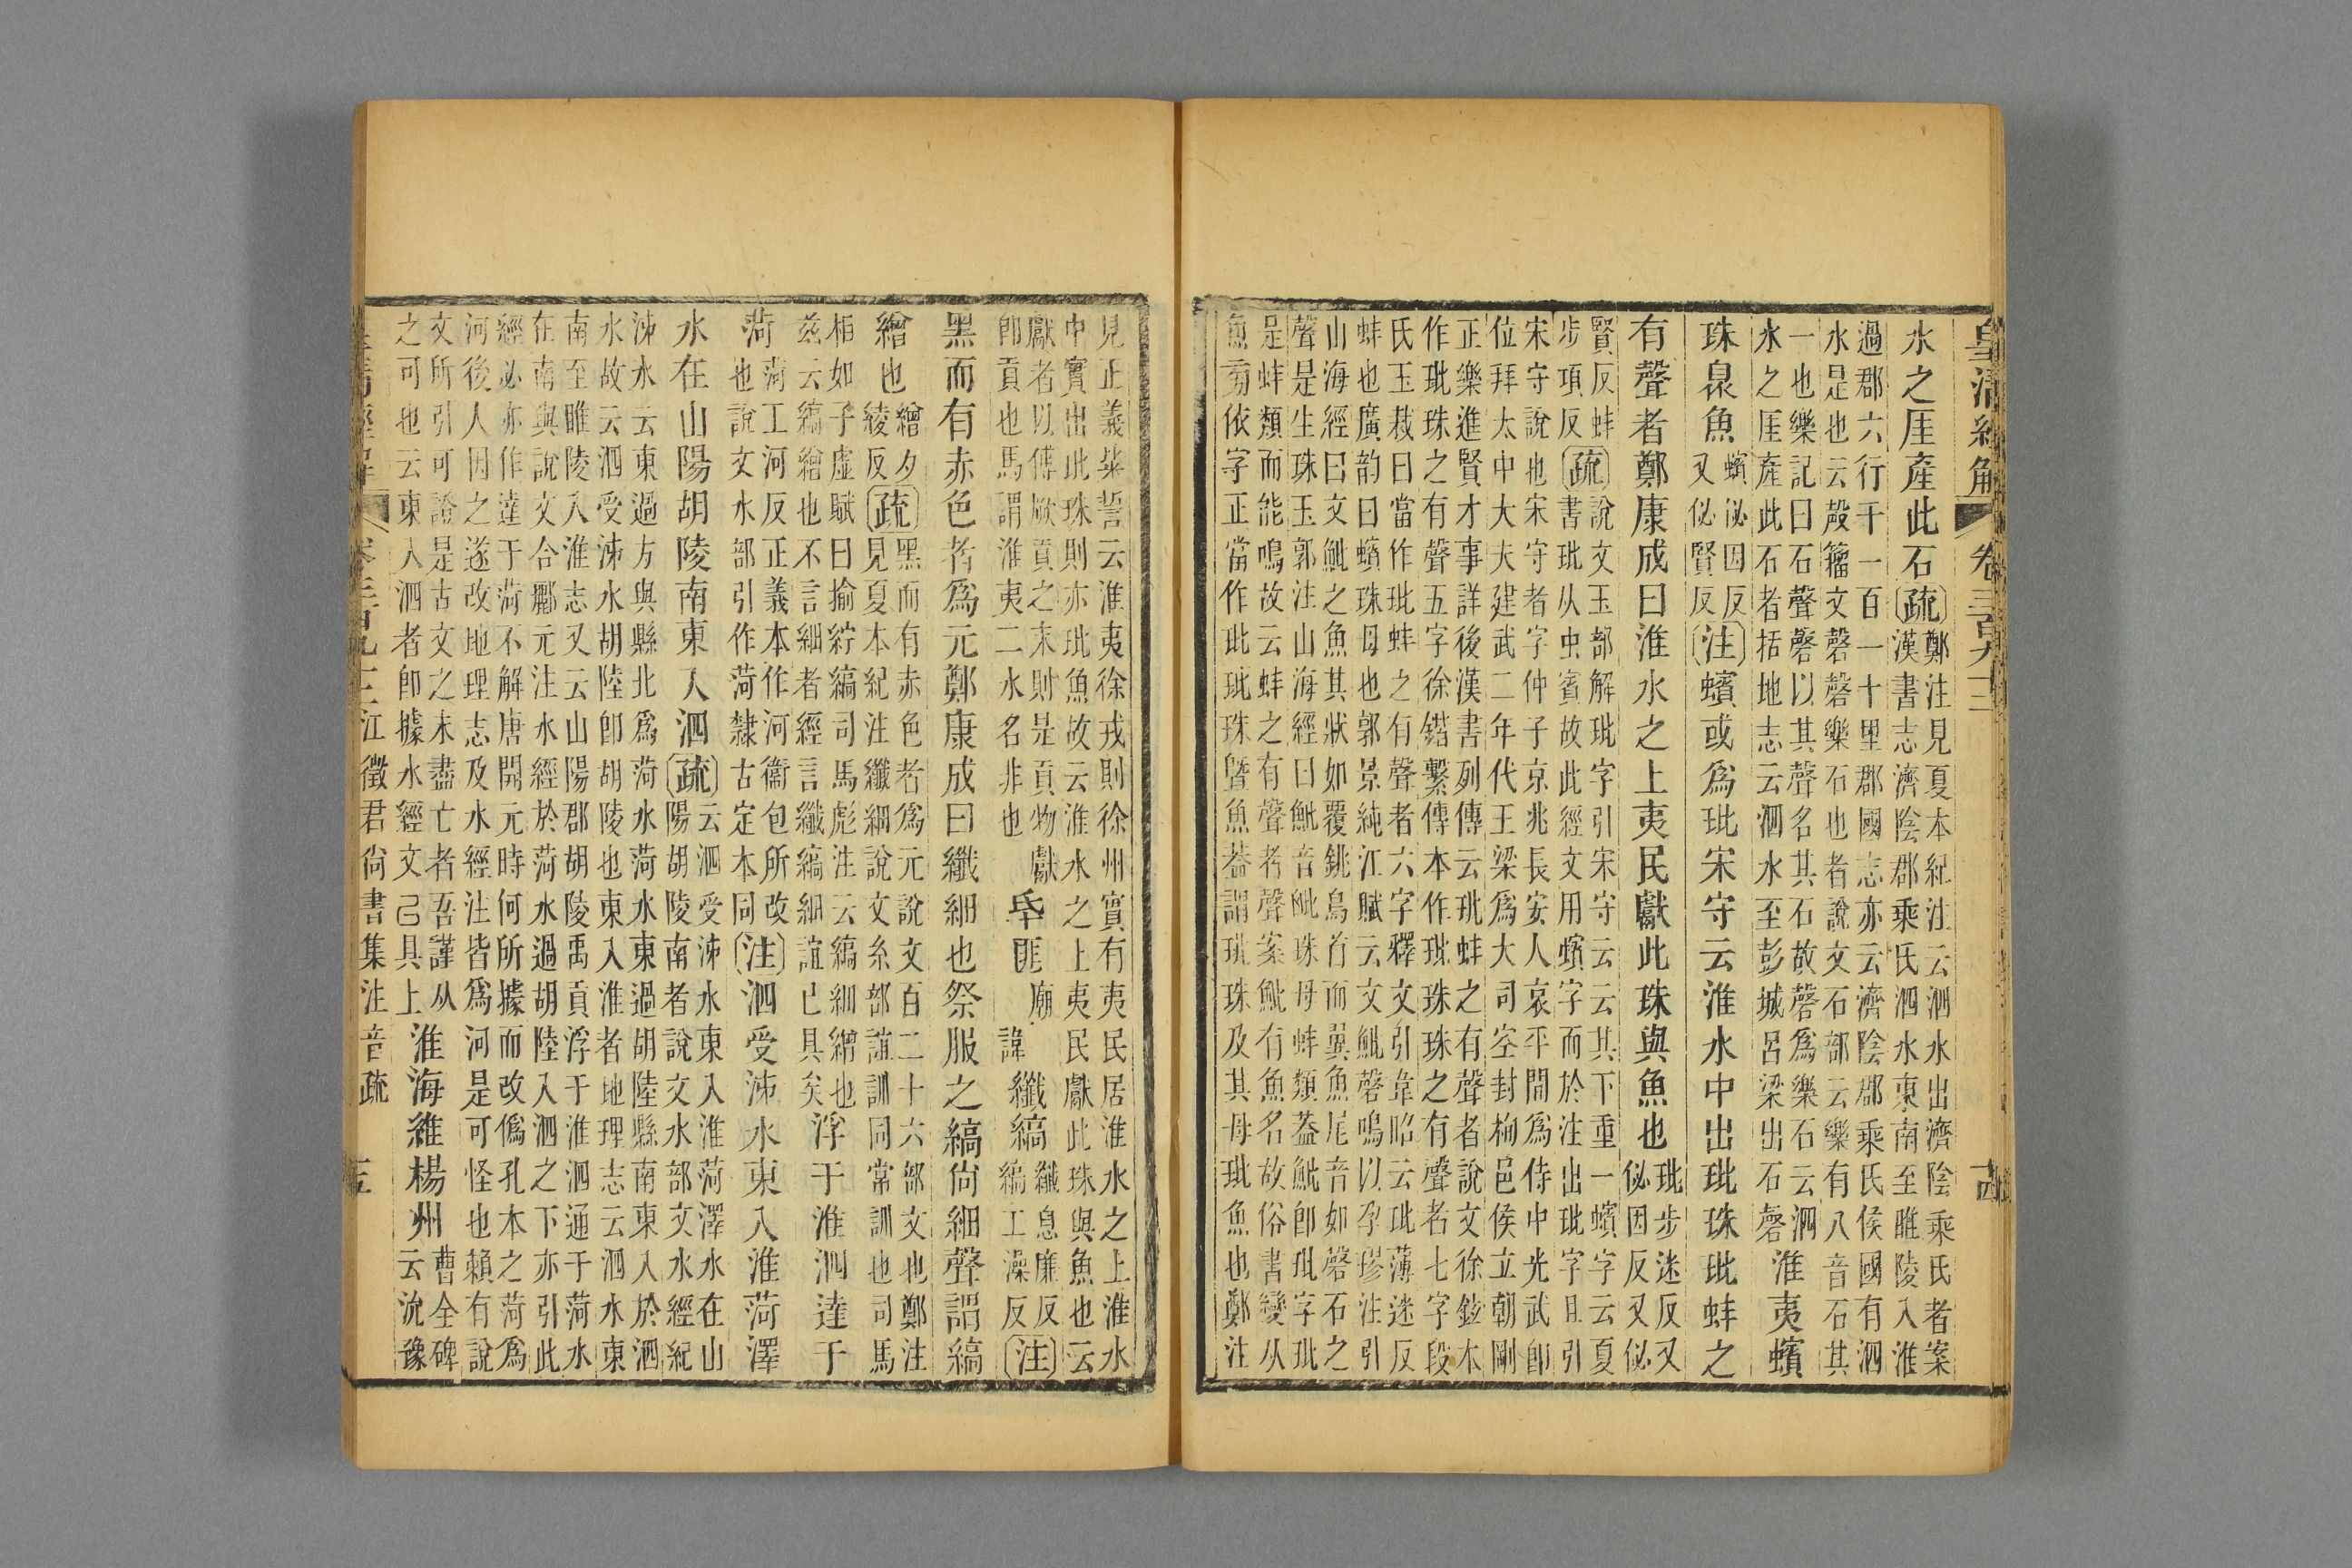 皇清經解 卷三百九十三 古
水之厓產此石疏鄭注見夏本紀注云泗水出濟陰乘氏者案
漢書志濟陰郡乘氏泗水東南至睢陵入淮
過郡六行千一百一十里郡國志亦云濟陰郡乘氏侯國有泗
水是也云殸籀文磬磬樂石也者說文石部云樂有八音石其
一也樂記曰石聲磬以其聲名其石故磬爲樂石云泗
水之厓產此石者括地志云泗水至彭城呂梁出石磬
淮夷蠙
珠臮魚蠙祕因反
又佖賢反注蠙或爲玭宋守云淮水中出玭珠玭蚌之
有聲者鄭康成曰淮水之上夷民獻此珠與魚也玭步迷反又
佖因反又佖
賢反蚌
步項反疏說文玉部解玭字引宋守云云其下重一蠙字云夏
書玭从虫賓故此經文用蠙字而於注出玭字且引
宋守說也宋守者字仲子京兆長安人哀平間爲侍中光武卽
位拜太中大夫建武二年代王梁爲大司空封栒邑侯立朝剛
正樂進賢才事詳後漢書列傳云玭蚌之有聲者說文徐鉉本
作玭珠之有聲五字徐鍇繫傳本作玭珠珠之有聲者七字段
氏玉裁曰當作玭蚌之有聲者六字釋文引韋昭云玭薄迷反
蚌也廣韵曰蠙珠母也郭景純江賦云文魮磬鳴以孕璆注引
山海經曰文魮之魚其狀如覆銚鳥首而翼魚尾音如磬石之
聲是生珠玉郭注山海經曰魮音玭珠母蚌類葢魮卽玭字玭
是蚌類而能鳴故云蚌之有聲者聲案魮有魚名故俗書變从
魚㫄依字正當作玭玭珠曁魚葢謂玭珠及其母玭魚也鄭注
見正義粊誓云淮夷徐戎則徐州實有夷民居淮水之上淮水
中實出玭珠則亦玭魚故云淮水之上夷民獻此珠與魚也云
獻者以傅厥貢之末則是貢物獻
卽貢也馬謂淮夷二水名非也
厥匪廟
諱纖縞纖息廉反
縞工澡反注
黑而有赤色者爲元鄭康成曰纖細也祭服之縞尙細聲謂縞
繒也繒夕
綾反疏黑而有赤色者爲元說文百二十六部文也鄭注
見夏本紀注纖細說文糸部誼訓同常訓也司馬
相如子虛賦曰揄紵縞司馬彪注云縞細繒也
玆云縞繒也不言細者經言纖縞細誼已具矣
浮于淮泗達于
菏菏工河反正義本作河衞包所改
也說文水部引作菏隸古定本同注泗受泲水東入淮菏澤
水在山陽胡陵南東入泗疏云泗受泲水東入淮菏澤水在山
陽胡陵南者說文水部文水經紀
泲水云東過方與縣北爲菏水菏水東過胡陸縣南東入於泗
水故云泗受泲水胡陸卽胡陵也東入淮者地理志云泗水東
南至睢陵入淮志又云山陽郡胡陵禹貢浮于淮泗通于菏水
在南與說文合酈元注水經於菏水過胡陸入泗之下亦引此
經必亦作達于菏不解唐開元時何所據而改僞孔本之菏爲
河後人因之遂改地理志及水經注皆爲河是可怪也賴有說
文所引可證是古文之未盡亡者吾謹从
之可也云東入泗者卽據水經文已具上
淮海維楊州曹全碑
云沇豫
皇淸經解 卷三百九十三 江徵君尙書集注音疏 主